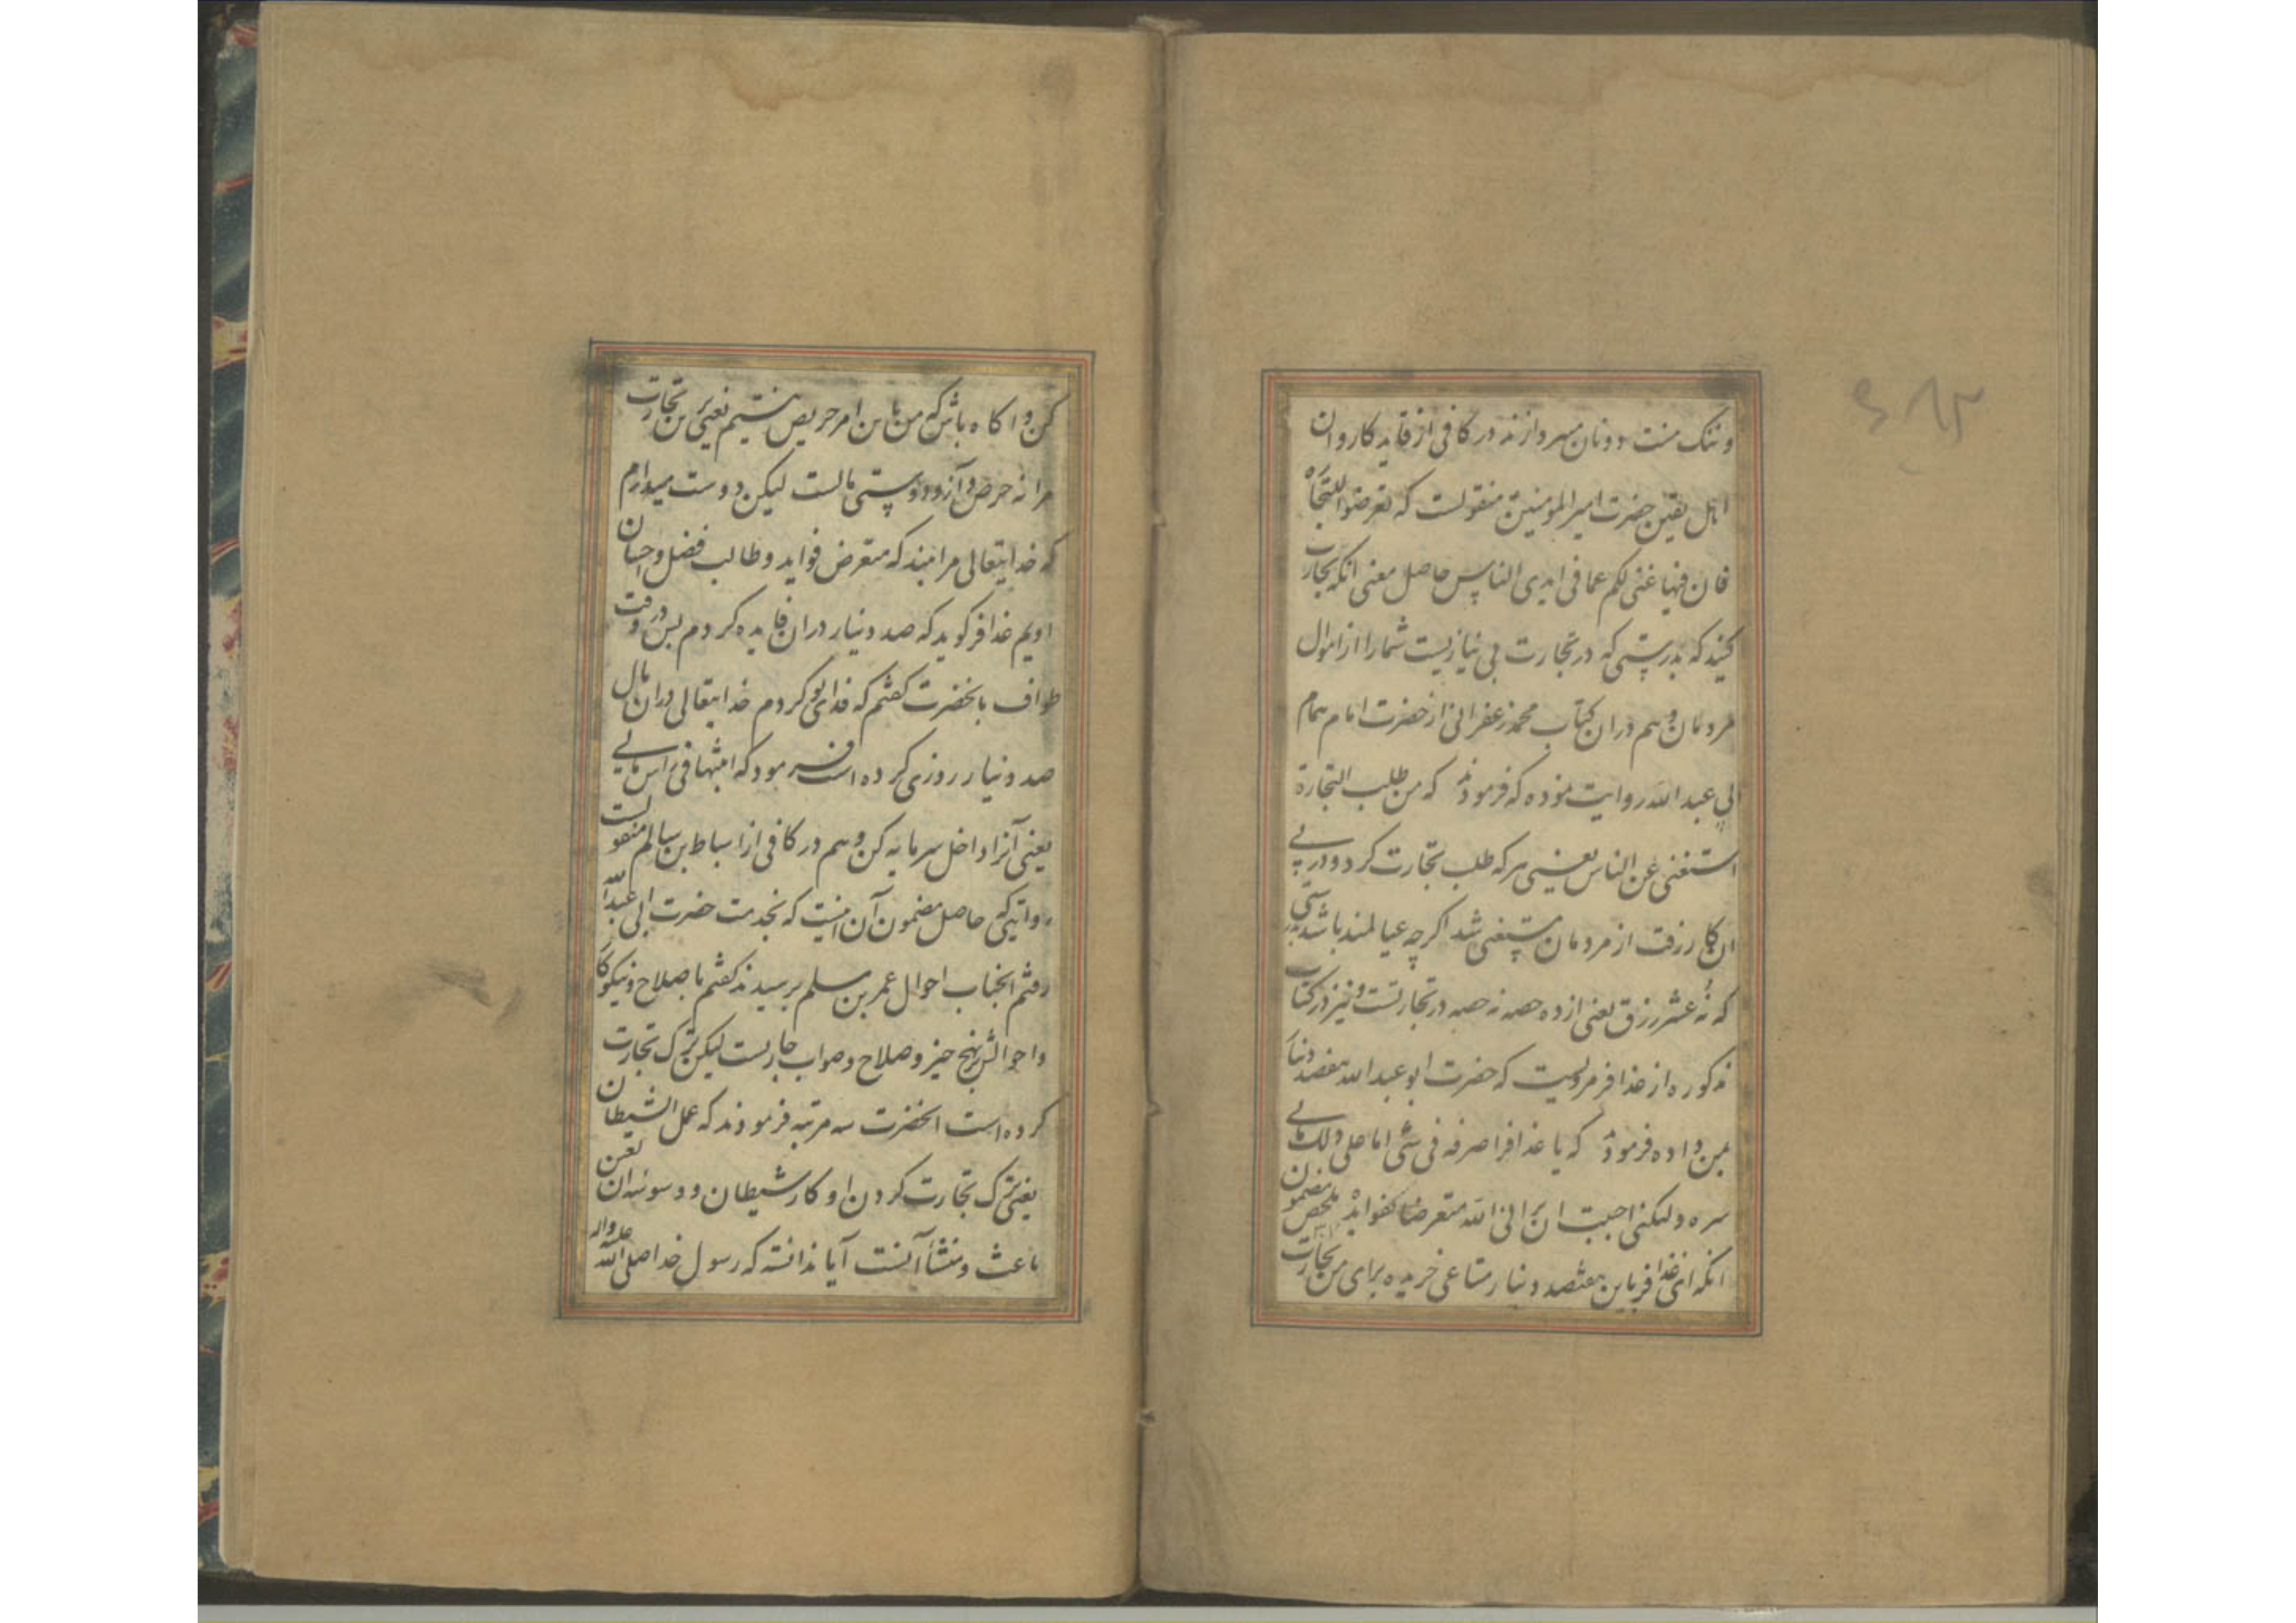 و ننگ منت دونان مپردازند در کافی از قاید کاروان
اهل یقین حضرت امیرالمومنین منقولست که تعرضوا للتجاره
فان فیها غنی لکم عما فی ایدی الناس حاصل معنی انکه تجارت
کنید که بدرستی که در تجارت بی نیازیست شما را از اموال
مردمان و هم دران کتاب محمد زعفرانی از حضرت امام همام
ابی عبد الله روایت نموده که فرمودند که من طلب التجارة
استغنی عن الناس یعنی هر که طلب تجارت کرد و در پی
ان کار رفت از مردمان مستغنی شد اگرچه عیالمند باشد بدرستی
که نه عشر رزق یعنی از ده حصه نه حصه در تجارتست و نیز در کتاب
مذکوره از عذافر مرویست که حضرت ابو عبد الله هفصد دینار
بمن داده فرمودند که یا عذافر اصرفه فی شی اما علی ذلک مابی
سره و لکنی احببت ان یرانی الله متعرضا لفوایده ملخص مضمون
انکه ای عذافر باین هفتصد دینار متاعی خریده برای من تجارت
کن و اکاه باش که من باین امر حریص نیستیم یعنی برین تجارت
مرا نه حرص و آز و دوستی مالست لیکن دوست میدارم
که خدایتعالی مرا بیند که متعرض فواید و طالب فضل و احسان
اویم عذافر کوید که صد دینار دران فایده کردم پس در وقت
طواف بانحضرت کفتم که فدای تو کردم خدایتعالی دران مال
صد دینار روزی کرده است فرمود که اثبتها فی راس مالی
یعنی آنرا داخل سرمایه کن و هم در کافی از اسباط بن سالم منقولست
روایتی که حاصل مضمون آن اینست که بخدمت حضرت ابی عبد الله
رفتم انجناب احوال عمر بن مسلم پرسیدند کفتم باصلاح و نیکوکار
و احوالش بر نهج خیر و صلاح و صواب جاریست لیکن ترک تجارت
کرده است انحضرت سه مرتبه فرمودند که عمل الشیطان
یعنی ترک تجارت کردن او کار شیطان و وسوسه ان لعین
باعث و منشأ آنست آیا ندانسته که رسول خدا صلی الله علیه واله